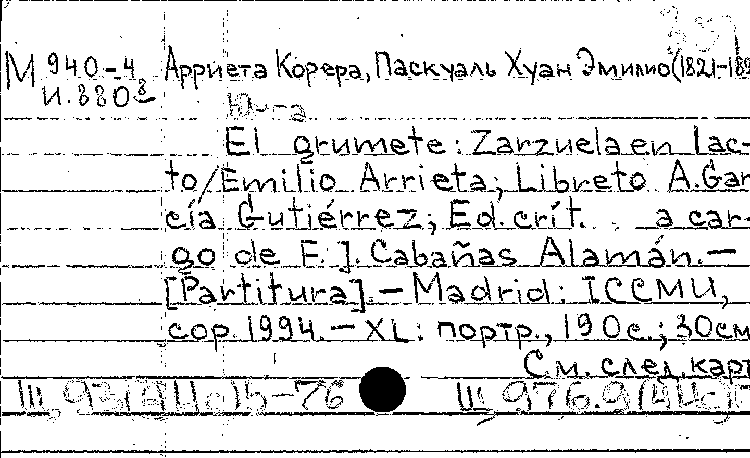 М 940-4 Арриета Корера, Паскуаль Хуан Эмилио (1821-189
И.880
El grumete: Zarzuela en 1 ac-
to/Emilio Arrieta; Libreto A.Gar
cía Gutiérrez; Ed. crít. a car-
go de F. J. Cabañas Alamán.—
[Partitura].— Madrid: ICCMU,
cop. 1994.— XL: портр., 190с.; 30см
См. след. карт